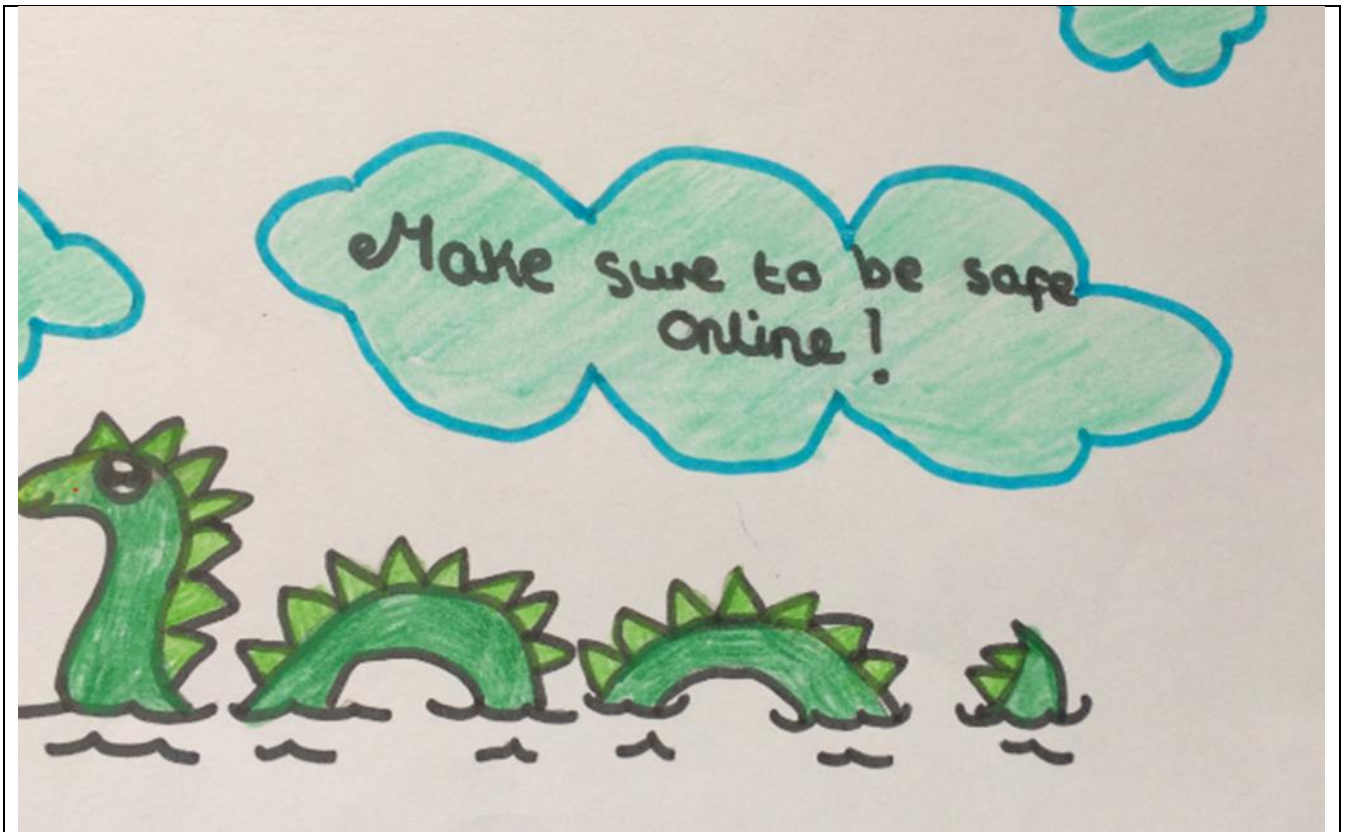 Make sure to be safe
Online!